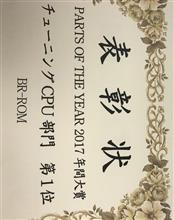 表彰状
PARTS OF THE YEAR 2017 年間大賞
チューニングCPU部門 第1位
BR-ROM